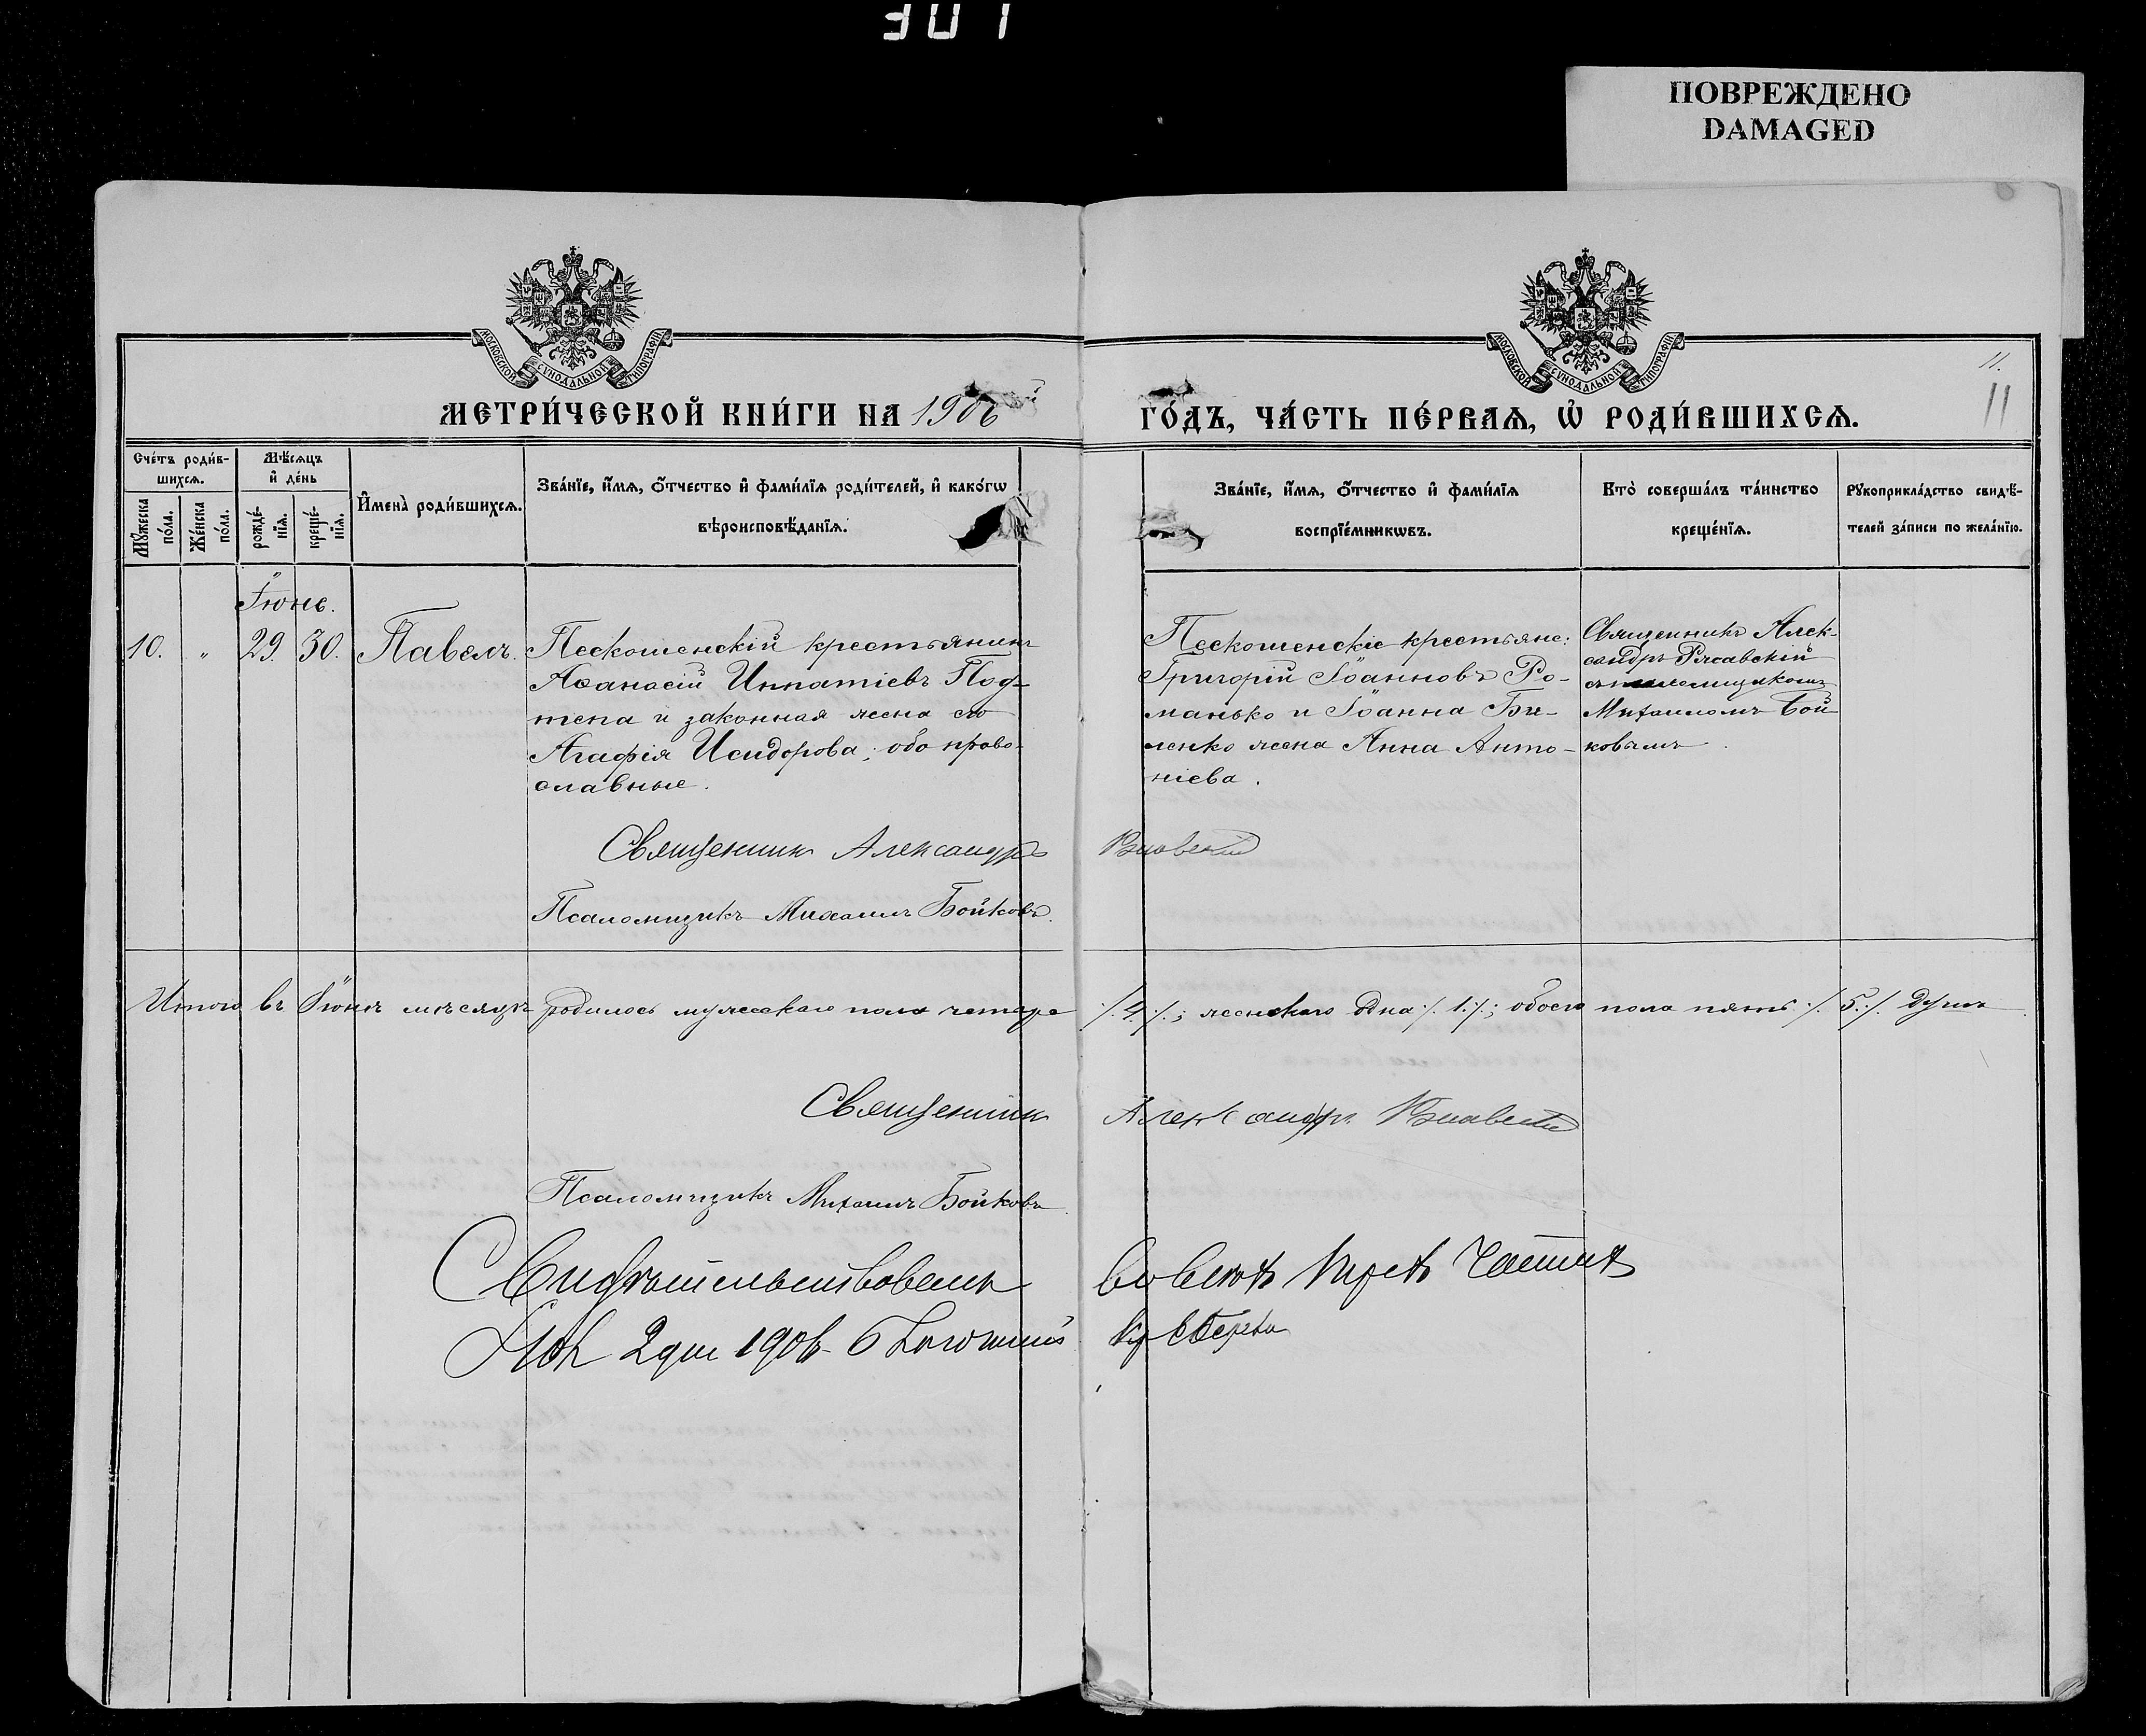 301
ПОВРЕЖДЕНО
DAMAGED
МОСКОВСКОЙ СѴНОДАЛЬНОЙ ТИПОГРАФІИ
МОСКОВСКОЙ СѴНОДАЛЬНОЙ ТИПОГРАФІИ
11.
11
МЕТРИ́ЧЕСКОЙ КНИ́ГИ НА 1906
ГО́ДЪ, ЧА́СТЬ ПЕ́РВАѦ, Ѽ РОДИ́ВШИХСѦ.
Сче́тъ роди́в-
шихсѧ.
Мѣ́сѧцъ
и҆ де́нь
Мꙋ́жеска
по́ла.
Же́нска
по́ла.
рожде́-
нїѧ.
креще́-
нїѧ.
И҆мена̀ роди́вшихсѧ.
Зва́нїе, и҆́мѧ, ѻ҆́тчество и҆ фами́лїѧ роди́телей, и҆ како́гѡ
вѣроисповѣ́данїѧ.
Зва́нїе, и҆́мѧ, ѻ҆́тчество и҆ фами́лїѧ
воспрїе́мникѡвъ.
Кто̀ соверша́лъ та́инство
креще́нїѧ.
Рꙋкоприкла́дство свидѣ́-
телей за́писи по жела́нїю.
Іюнь.
10. " 29. 30. Павелъ.
Пескошенскій крестьянинъ
Аѳанасій Ипатіевъ Под-
тепа и законная жена его
Агафія Исидорова; оба право-
славные.
Пескошенскіе крестьяне:
Григорій Іоанновъ Ро-
манько и Іоанна Би-
ленко жена Анна Анто-
ніева.
Священникъ Алек-
сандръ Рясавскій
съ псаломщикомъ
Михаиломъ Бой
ковымъ.
Священникъ Александръ
Псаломщикъ Михаилъ Бойковъ.
Итого въ Іюнѣ мѣсяцѣ родилось мужескаго пола четыре ./.4./.; женскаго одна ./.1./.; обоего пола пять ./.5./. душъ.
Священникъ Александръ
Псаломщикъ Михаилъ Бойковъ.
Свидѣтельствовалъ во всѣхъ трехъ частяхъ
2 дня 1906 Благочинный